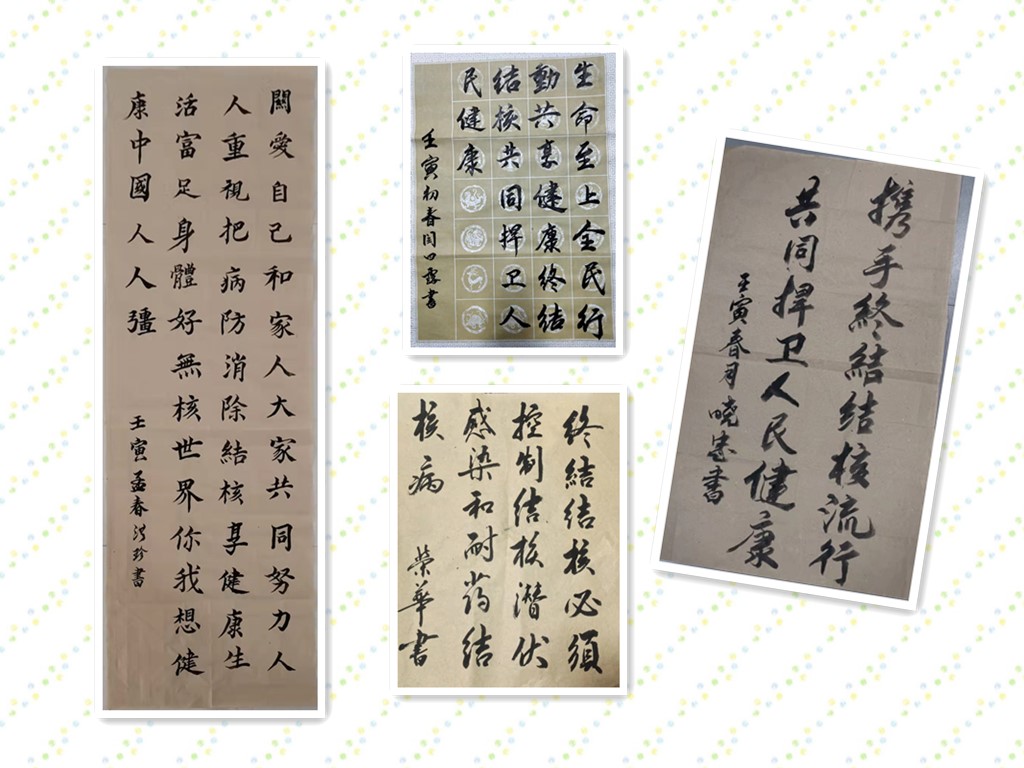 關愛自己和家人大家共同努力人
人重視把病防消除結核享健康生
活富足身體好無核世界你我想健
康中國人人彊
壬寅孟春珍書
生命至上全民行
動共享健康终结
结核共同捍卫人
民健康
壬寅初春書
终結结核必須
控制结核潜伏
感染和耐药结
核病
荣華書
携手终結结核流行
共同捍卫人民健康
壬寅春月晓忠書